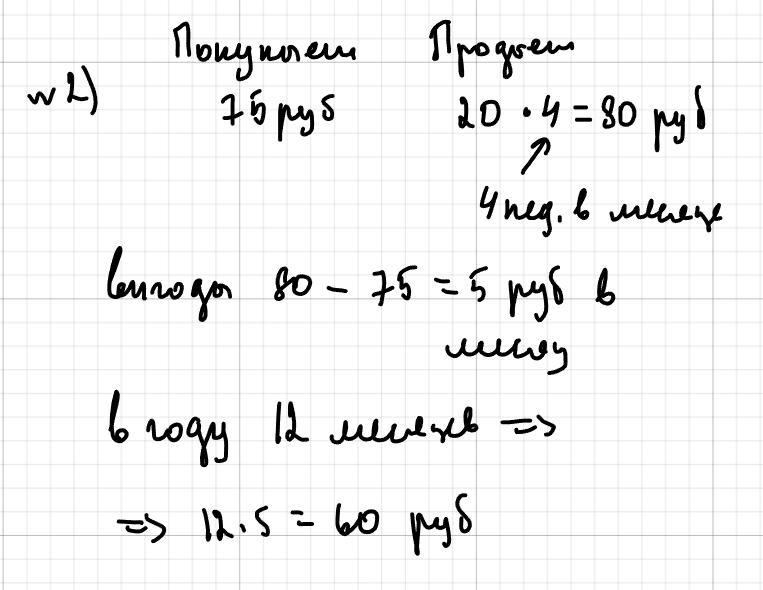 Покупает Продает
№2) 75 руб 20 · 4 = 80 руб
4 нед. в месяце
Выгода 80 - 75 = 5 руб в
месяц
В году 12 месяцев =>
=> 12 · 5 = 60 руб